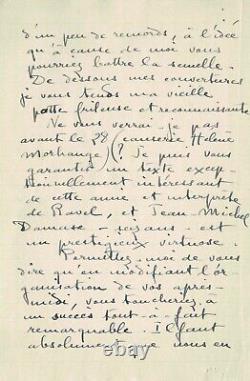 d'un peu de remords, à l'idée
qu'à cause de moi vous
pourriez battre la semelle.
De dessous mes couvertures
je vous tends ma vieille
patte frileuse et reconnaissante
Ne vous verrai-je pas
avant le 28 (causerie Hélène
Morhange)? Je puis vous
garantir un texte excep-
tionnellement intéressant
de cette amie et interprète
de Ravel, et Jean-Michel
Damase - ans - est
un prestigieux virtuose.
Permettez-moi de vous
dire qu'en modifiant l'or-
ganisation de vos après-
midi, vous toucheriez à
un succès tout-à-fait
remarquable. Il faut
absolument que nous en
ebay